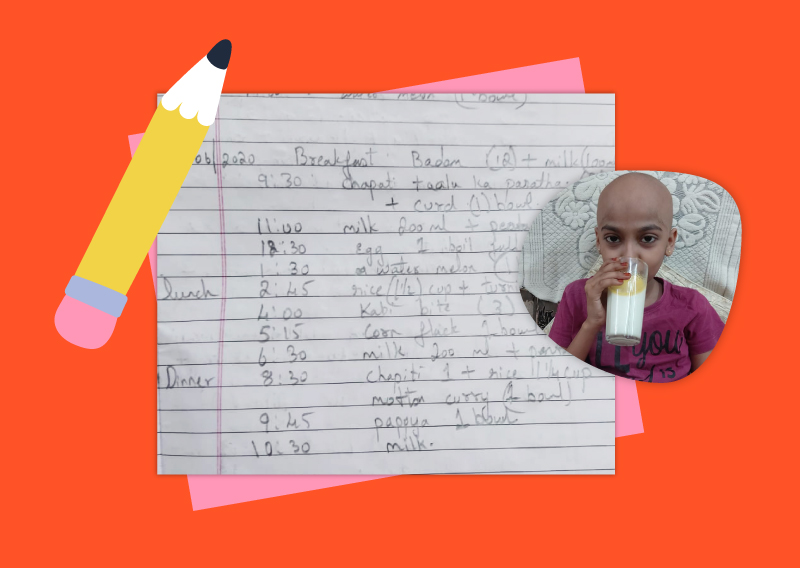 06/2020 Breakfast Badam (12) + milk (100m
9:30 chapati + aalu ka paratha
+ curd (1) bowl
11:00 milk 200 ml +
12:30 egg 1 boil
1:30 water melon (
Lunch 2:45 rice (1½) cup +
4:00 Kabi bite (3)
5:15 corn flack 1 bowl
6:30 milk 200 ml +
Dinner 8:30 chapiti 1 + rice 1 1/4 cup
motton curry (1 bowl)
9:45 papaya 1 bowl
10:30 milk.
you
IS